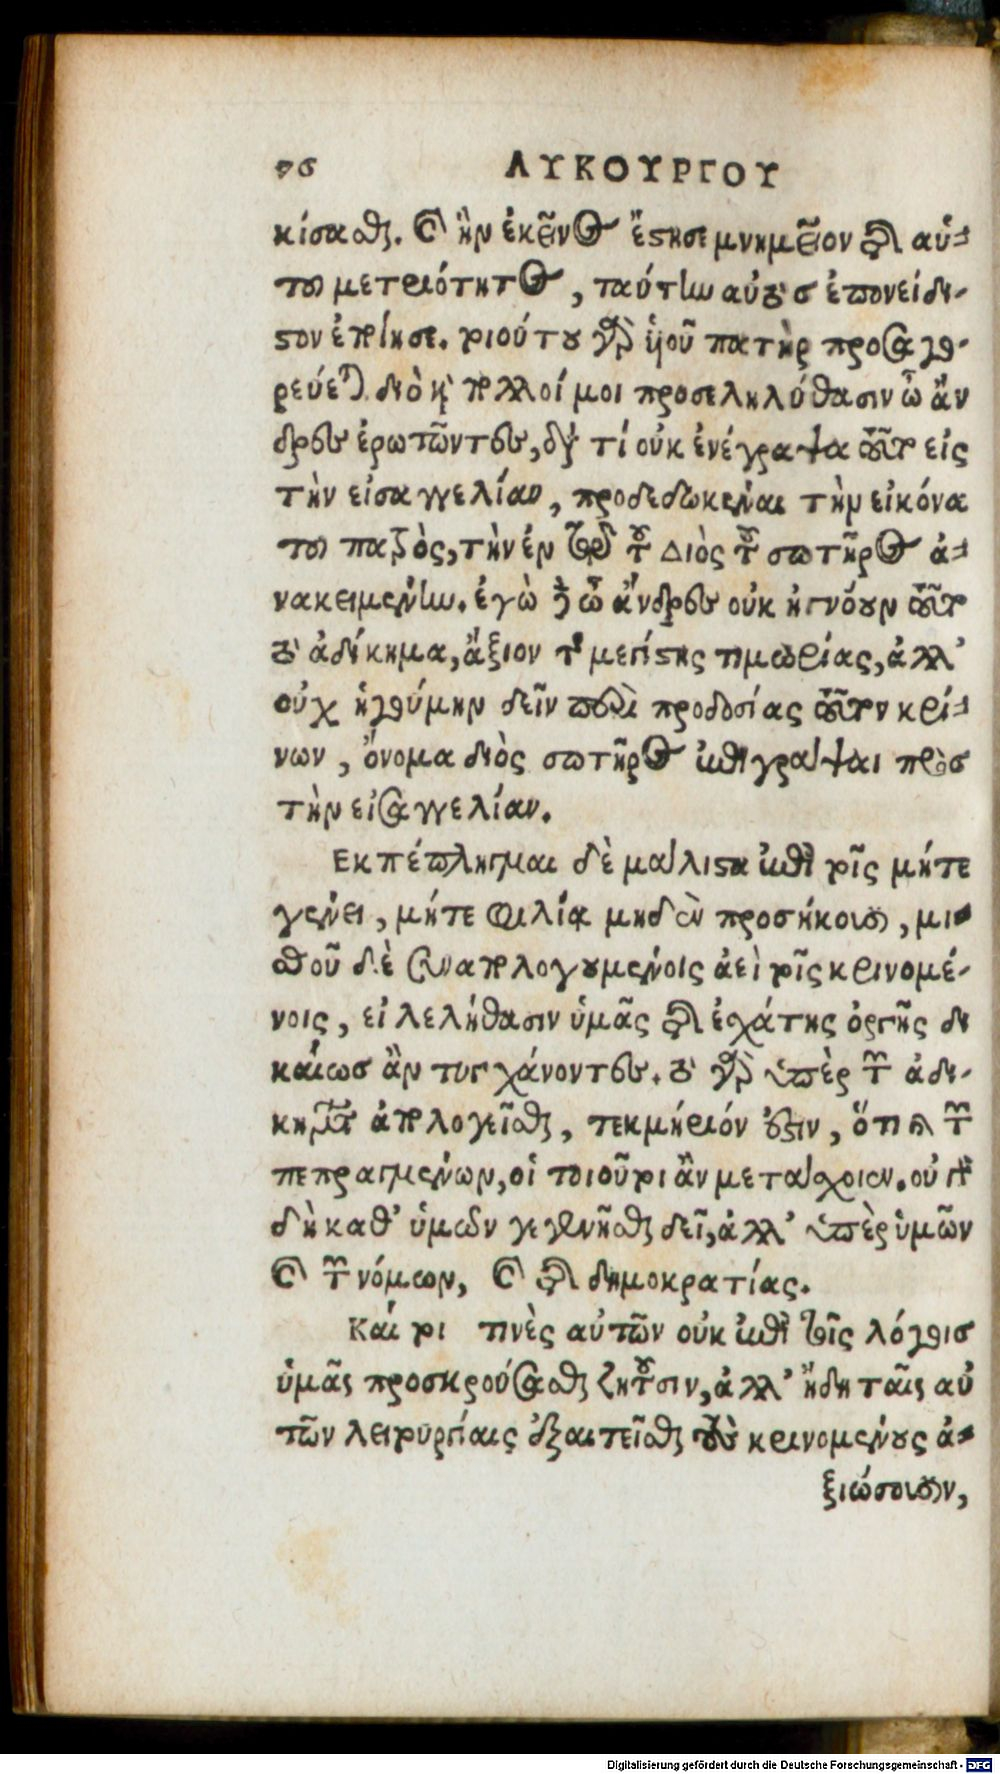 76 ΛΥΚΟΥΡΓΟΥ
κίσασθαι. καὶ ἣν ἐκεῖνος ἔστησε μνημεῖον τῆς αὑ-
τοῦ μετριότητος, ταύτην αὐτὸς ἐπονείδι-
στον ἐποίησε. τοιούτου γὰρ υἱοῦ πατὴρ προσαγο-
ρεύεται. διὸ καὶ πολλοί μοι προσεληλύθασιν ὦ ἄν
δρες ἐρωτῶντες, διὰ τί οὐκ ἐνέγραψα τοῦτο εἰς
τὴν εἰσαγγελίαν, προδεδωκέναι τὴν εἰκόνα
τοῦ πατρὸς, τὴν ἐν τῷ τοῦ Διὸς τοῦ σωτῆρος ἀ-
νακειμένην. ἐγὼ δὲ ὦ ἄνδρες οὐκ ἠγνόουν τοῦτο
τὸ ἀδίκημα, ἄξιον τῆς μεγίστης τιμωρίας, ἀλλ'
οὐχ ἡγούμην δεῖν περὶ προδοσίας τοῦτον κρί-
νων, ὄνομα Διὸς σωτῆρος ἐπιγράψαι πρὸς
τὴν εἰσαγγελίαν.
Εκπέπληγμαι δὲ μάλιστα ἐπὶ τοῖς μήτε
γένει, μήτε φιλίᾳ μηδὲν προσήκουσι, μι-
σθοῦ δὲ συναπολογουμένοις ἀεὶ τοῖς κρινομέ-
νοις, εἰ λελήθασιν ὑμᾶς τῆς ἐσχάτης ὀργῆς δι
καίως ἂν τυγχάνοντες. τὸ γὰρ ὑπὲρ τῶν ἀδι-
κημάτων ἀπολογεῖσθαι, τεκμήριόν ἐστιν, ὅτι καὶ τῶν
πεπραγμένων, οἱ τοιοῦτοι ἂν μετάσχοιεν. οὐ γὰρ
δὴ καθ' ὑμῶν γεγενῆσθαι δεῖ, ἀλλ' ὑπὲρ ὑμῶν
καὶ τῶν νόμων, καὶ τῆς δημοκρατίας.
Καί τοι τινὲς αὐτῶν οὐκ ἐπὶ τοῖς λόγοις
ὑμᾶς προσκρούσασθαι ζητοῦσιν, ἀλλ' ἤδη ταῖς αὑ
τῶν λειτουργίαις ἐξαιτεῖσθαι τοὺς κρινομένους ἀ-
ξιώσουσιν,
Digitalisierung gefördert durch die Deutsche Forschungsgemeinschaft - DFG